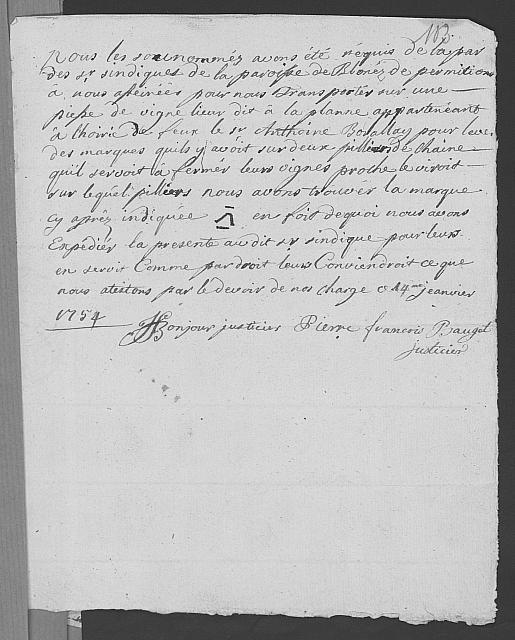 103
Nous les sousnommés avons été requis de la par
des sr sindiques de la paroisse de Blonéz de permition
à nous pour nous transporter sur une
piesse de vigne lieux dit à la planne appartenéant
à l'hoirie de feux le sr Anthoine pour lever
des marques quils y avoit sur deux pilliers de chaine
qu'il servoit à fermer leurs vignes proche le viroit
sur lequel pilliers nous avons trouver la marque
cy aprèz indiquée en foit de quoi nous avons
Expediér la presente audit sr sindique pour leurs
en servit Comme par droit leurs Conviendroit ce que
nous atestons par le devoir de nos charge ce 14me jeanvier
1754
Bonjour justicier Pierre francois Baugel
justicier